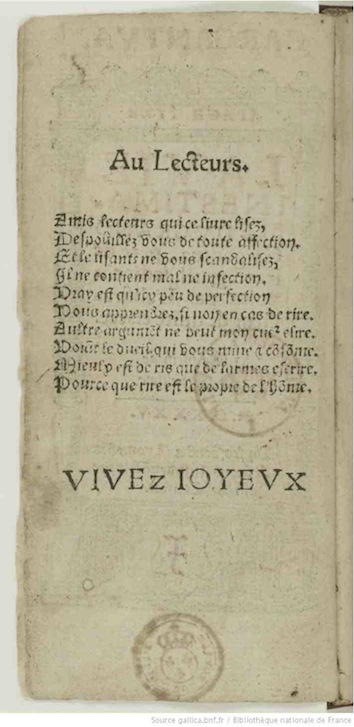 Au Lecteurs.
Amis lecteurs qui ce livre lisez,
Despouillez vous de toute affection.
Et le lisants ne vous scandalisez,
Il ne contient mal ne infection.
Vray est qu'icy peu de perfection
Vous apprendrez, si non en cas de rire.
Aultre argumẽt ne peut mon cuer elire.
Voiãt le dueil, qui vous mine & cõsõme.
Mieulx est de ris que de larmes escrire.
Pource que rire est le propre de l'hõme.
VIVEz IOYEVX
Source gallica.bnf.fr / Bibliothèque nationale de France